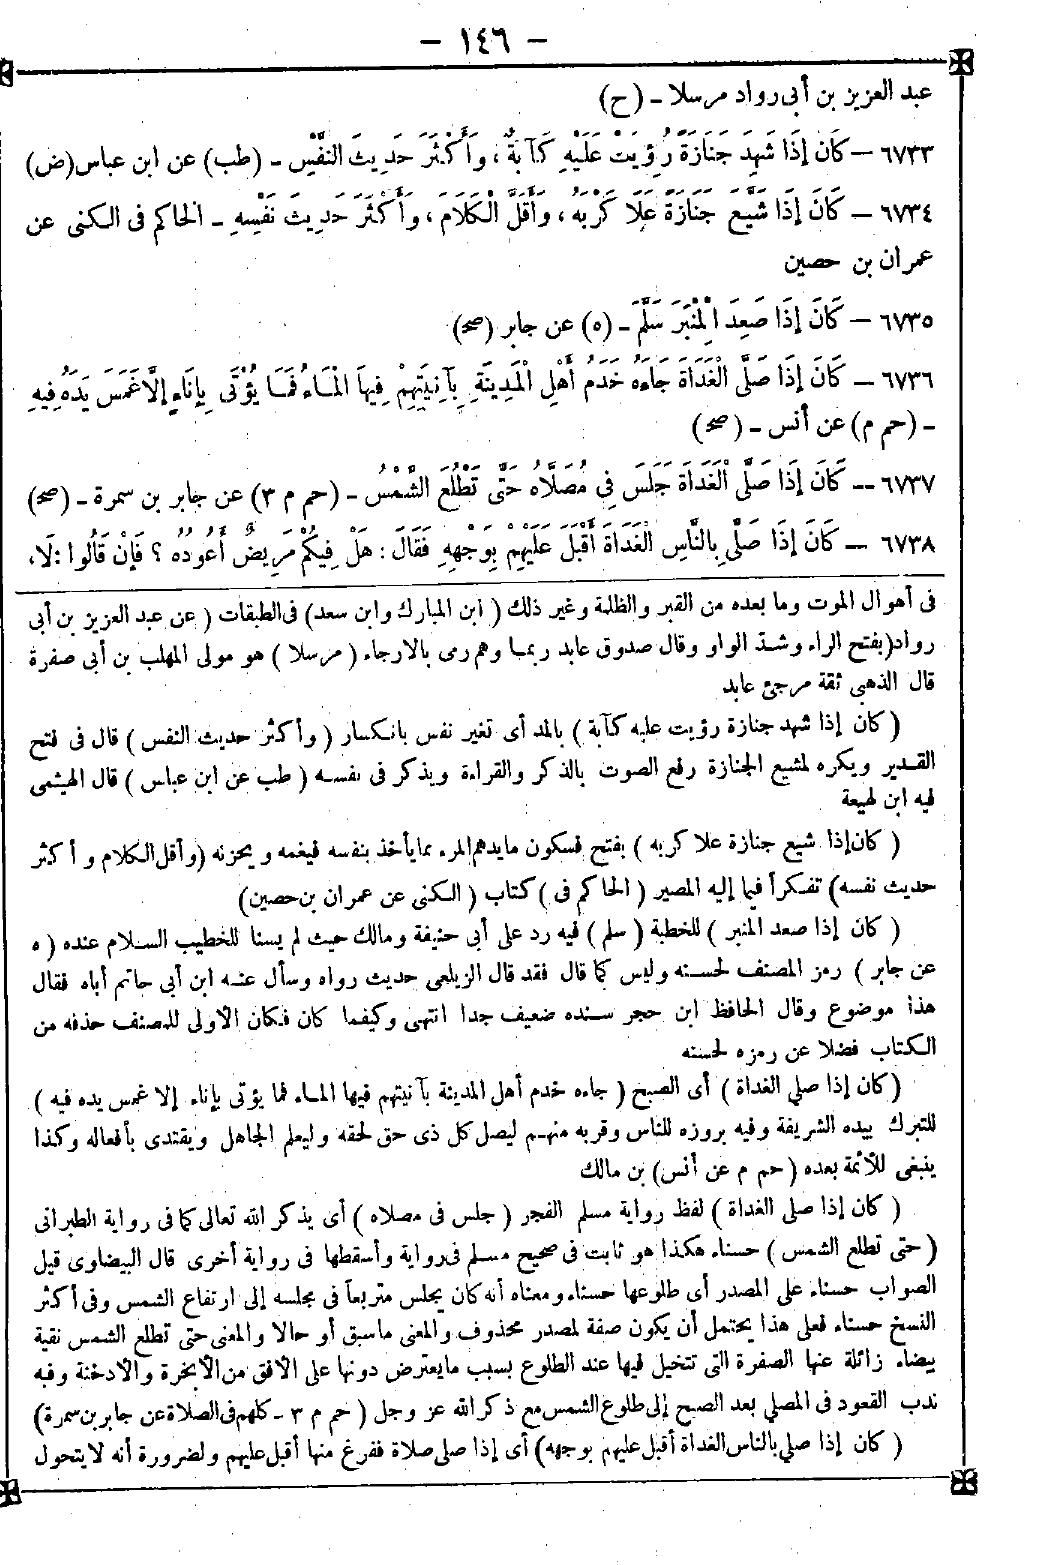 – ١٤٦ –
عبد العزيز بن أبى رواد مرسلا – (ح)
٦٧٣٣ – كَانَ إِذَا شَهِدَ جَنَازَةً رُؤِيَتْ عَلَيْهِ كَآبَةٌ ، وَأَكْثَرَ حَدِيثَ النَّفْسِ – (طب) عن ابن عباس (ض)
٦٧٣٤ – كَانَ إِذَا شَيَّعَ جَنَازَةً عَلَا كَرْبُهُ ، وَأَقَلَّ الْكَلَامَ ، وَأَكْثَرَ حَدِيثَ نَفْسِهِ – الحاكم فى الكنى عن
عمران بن حصين
٦٧٣٥ – كَانَ إِذَا صَعِدَ الْمِنْبَرَ سَلَّمَ – (ه) عن جابر (صح)
٦٧٣٦ – كَانَ إِذَا صَلَّى الْغَدَاةَ جَاءَهُ خَدَمُ أَهْلِ الْمَدِينَةِ بِآنِيَتِهِمْ فِيهَا الْمَاءُ فَمَا يُؤْتَى بِإِنَاءٍ إِلَّا غَمَسَ يَدَهُ فِيهِ
– (حم م) عن أنس – (صح)
٦٧٣٧ –– كَانَ إِذَا صَلَّى الْغَدَاةَ جَلَسَ فِى مُصَلَّاهُ حَتَّى تَطْلُعَ الشَّمْسُ – (حم م ٣) عن جابر بن سمرة – (صح)
٦٧٣٨ – كَانَ إِذَا صَلَّى بِالنَّاسِ الْغَدَاةَ أَقْبَلَ عَلَيْهِمْ بِوَجْهِهِ فَقَالَ : هَلْ فِيكُمْ مَرِيضٌ أَعُودُهُ ؟ فَإِنْ قَالُوا : لَا،
فى أهوال الموت وما بعده من القبر والظلمة وغير ذلك ( ابن المبارك وابن سعد) فى الطبقات ( عن عبد العزيز بن أبى
رواد(بفتح الراء وشدّ الواو وقال صدوق عابد ربما وهم رمى بالارجاء ( مرسلا ) هو مولى المهلب بن أبى صفرة
قال الذهبى ثقة مرجئ عابد
( كان إذا شهد جنازة رؤيت عليه كآبة ) بالمد أى تغير نفس بانكسار ( وأكثر حديث النفس ) قال فى فتح
القدير ويكره لمشيع الجنازة رفع الصوت بالذكر والقراءة ويذكر فى نفسه ( طب عن ابن عباس ) قال الهيثمى
فيه ابن لهيعة
( كان إذا شيع جنازة علا كربه ) بفتح فسكون ما يدهم المرء مما يأخذ بنفسه فيغمه ويحزنه (وأقل الكلام وأكثر
حديث نفسه) تفكرا فيما إليه المصير ( الحاكم فى ) كتاب ( الكنى عن عمران بن حصين)
( كان إذا صعد المنبر ) للخطبة ( سلم ) فيه رد على أبى حنيفة ومالك حيث لم يسنا للخطيب السلام عنده ( ه
عن جابر ) رمز المصنف لحسنه وليس كما قال فقد قال الزيلعى حديث رواه وسأل عنه ابن أبى حاتم أباه فقال
هذا موضوع وقال الحافظ ابن حجر سنده ضعيف جدا انتهى وكيفما كان فكان الأولى للمصنف حذفه من
الكتاب فضلا عن رمزه لحسنه
( كان إذا صلى الغداة ) أى الصبح ( جاءه خدم أهل المدينة بآنيتهم فيها الماء فما يؤتى بإناء إلا غمس يده فيه )
للتبرك بيده الشريفة وفيه بروزه للناس وقربه منهم ليصل كل ذى حق لحقه وليعلم الجاهل ويقتدى بأفعاله وكذا
ينبغى للأئمة بعده ( حم م عن أنس) بن مالك
( كان إذا صلى الغداة ) لفظ رواية مسلم الفجر ( جلس فى مصلاه ) أى يذكر الله تعالى كما فى رواية الطبرانى
( حتى تطلع الشمس ) حسناء هكذا هو ثابت فى صحيح مسلم فى رواية وأسقطها فى رواية أخرى قال البيضاوى قيل
الصواب حسناء على المصدر أى طلوعها حسناء ومعناه أنه كان يجلس متربعا فى مجلسه إلى ارتفاع الشمس وفى أكثر
النسخ حسناء فعلى هذا يحتمل أن يكون صفة لمصدر محذوف والمعنى ما سبق أو حالا والمعنى حتى تطلع الشمس نقية
بيضاء زائلة عنها الصفرة التى تتخيل فيها عند الطلوع بسبب ما يعترض دونها على الأفق من الأبخرة والأدخنة وفيه
ندب القعود فى المصلى بعد الصبح إلى طلوع الشمس مع ذكر الله عز وجل ( حم م ٣ – كلهم فى الصلاة عن جابر بن سمرة)
( كان إذا صلى بالناس الغداة أقبل عليهم بوجهه) أى إذا صلى صلاة ففرغ منها أقبل عليهم ولضرورة أنه لا يتحول